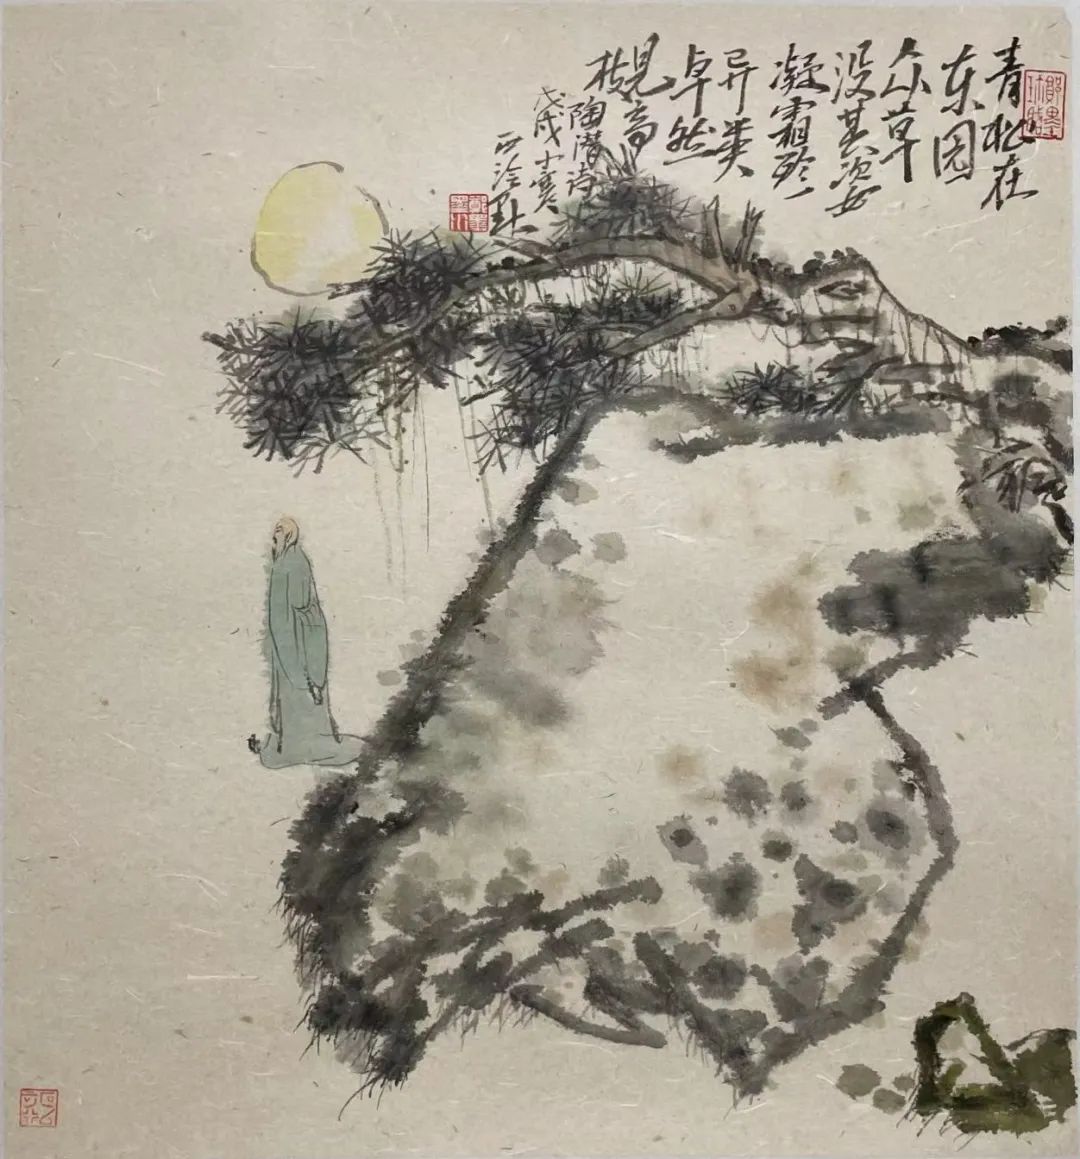 青松在
东园
众草
没其姿
凝霜殄
异类
卓然
见高
枝
陶潜诗
戊戌小寒
西泠